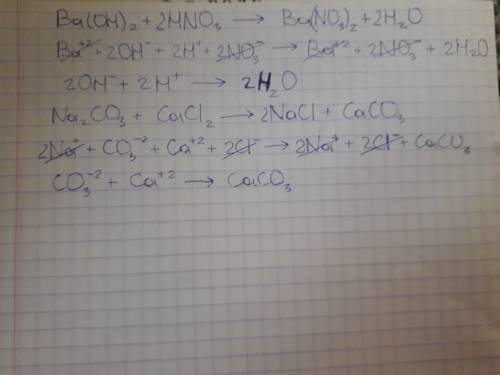 Ba(OH)₂ + 2HNO₃ → Ba(NO₃)₂ + 2H₂O
Ba⁺² + 2OH⁻ + 2H⁺ + 2NO₃⁻ → Ba⁺² + 2NO₃⁻ + 2H₂O
2OH⁻ + 2H⁺ → 2H₂O
Na₂CO₃ + CaCl₂ → 2NaCl + CaCO₃
2Na⁺ + CO₃⁻² + Ca⁺² + 2Cl⁻ → 2Na⁺ + 2Cl⁻ + CaCO₃
CO₃⁻² + Ca⁺² → CaCO₃